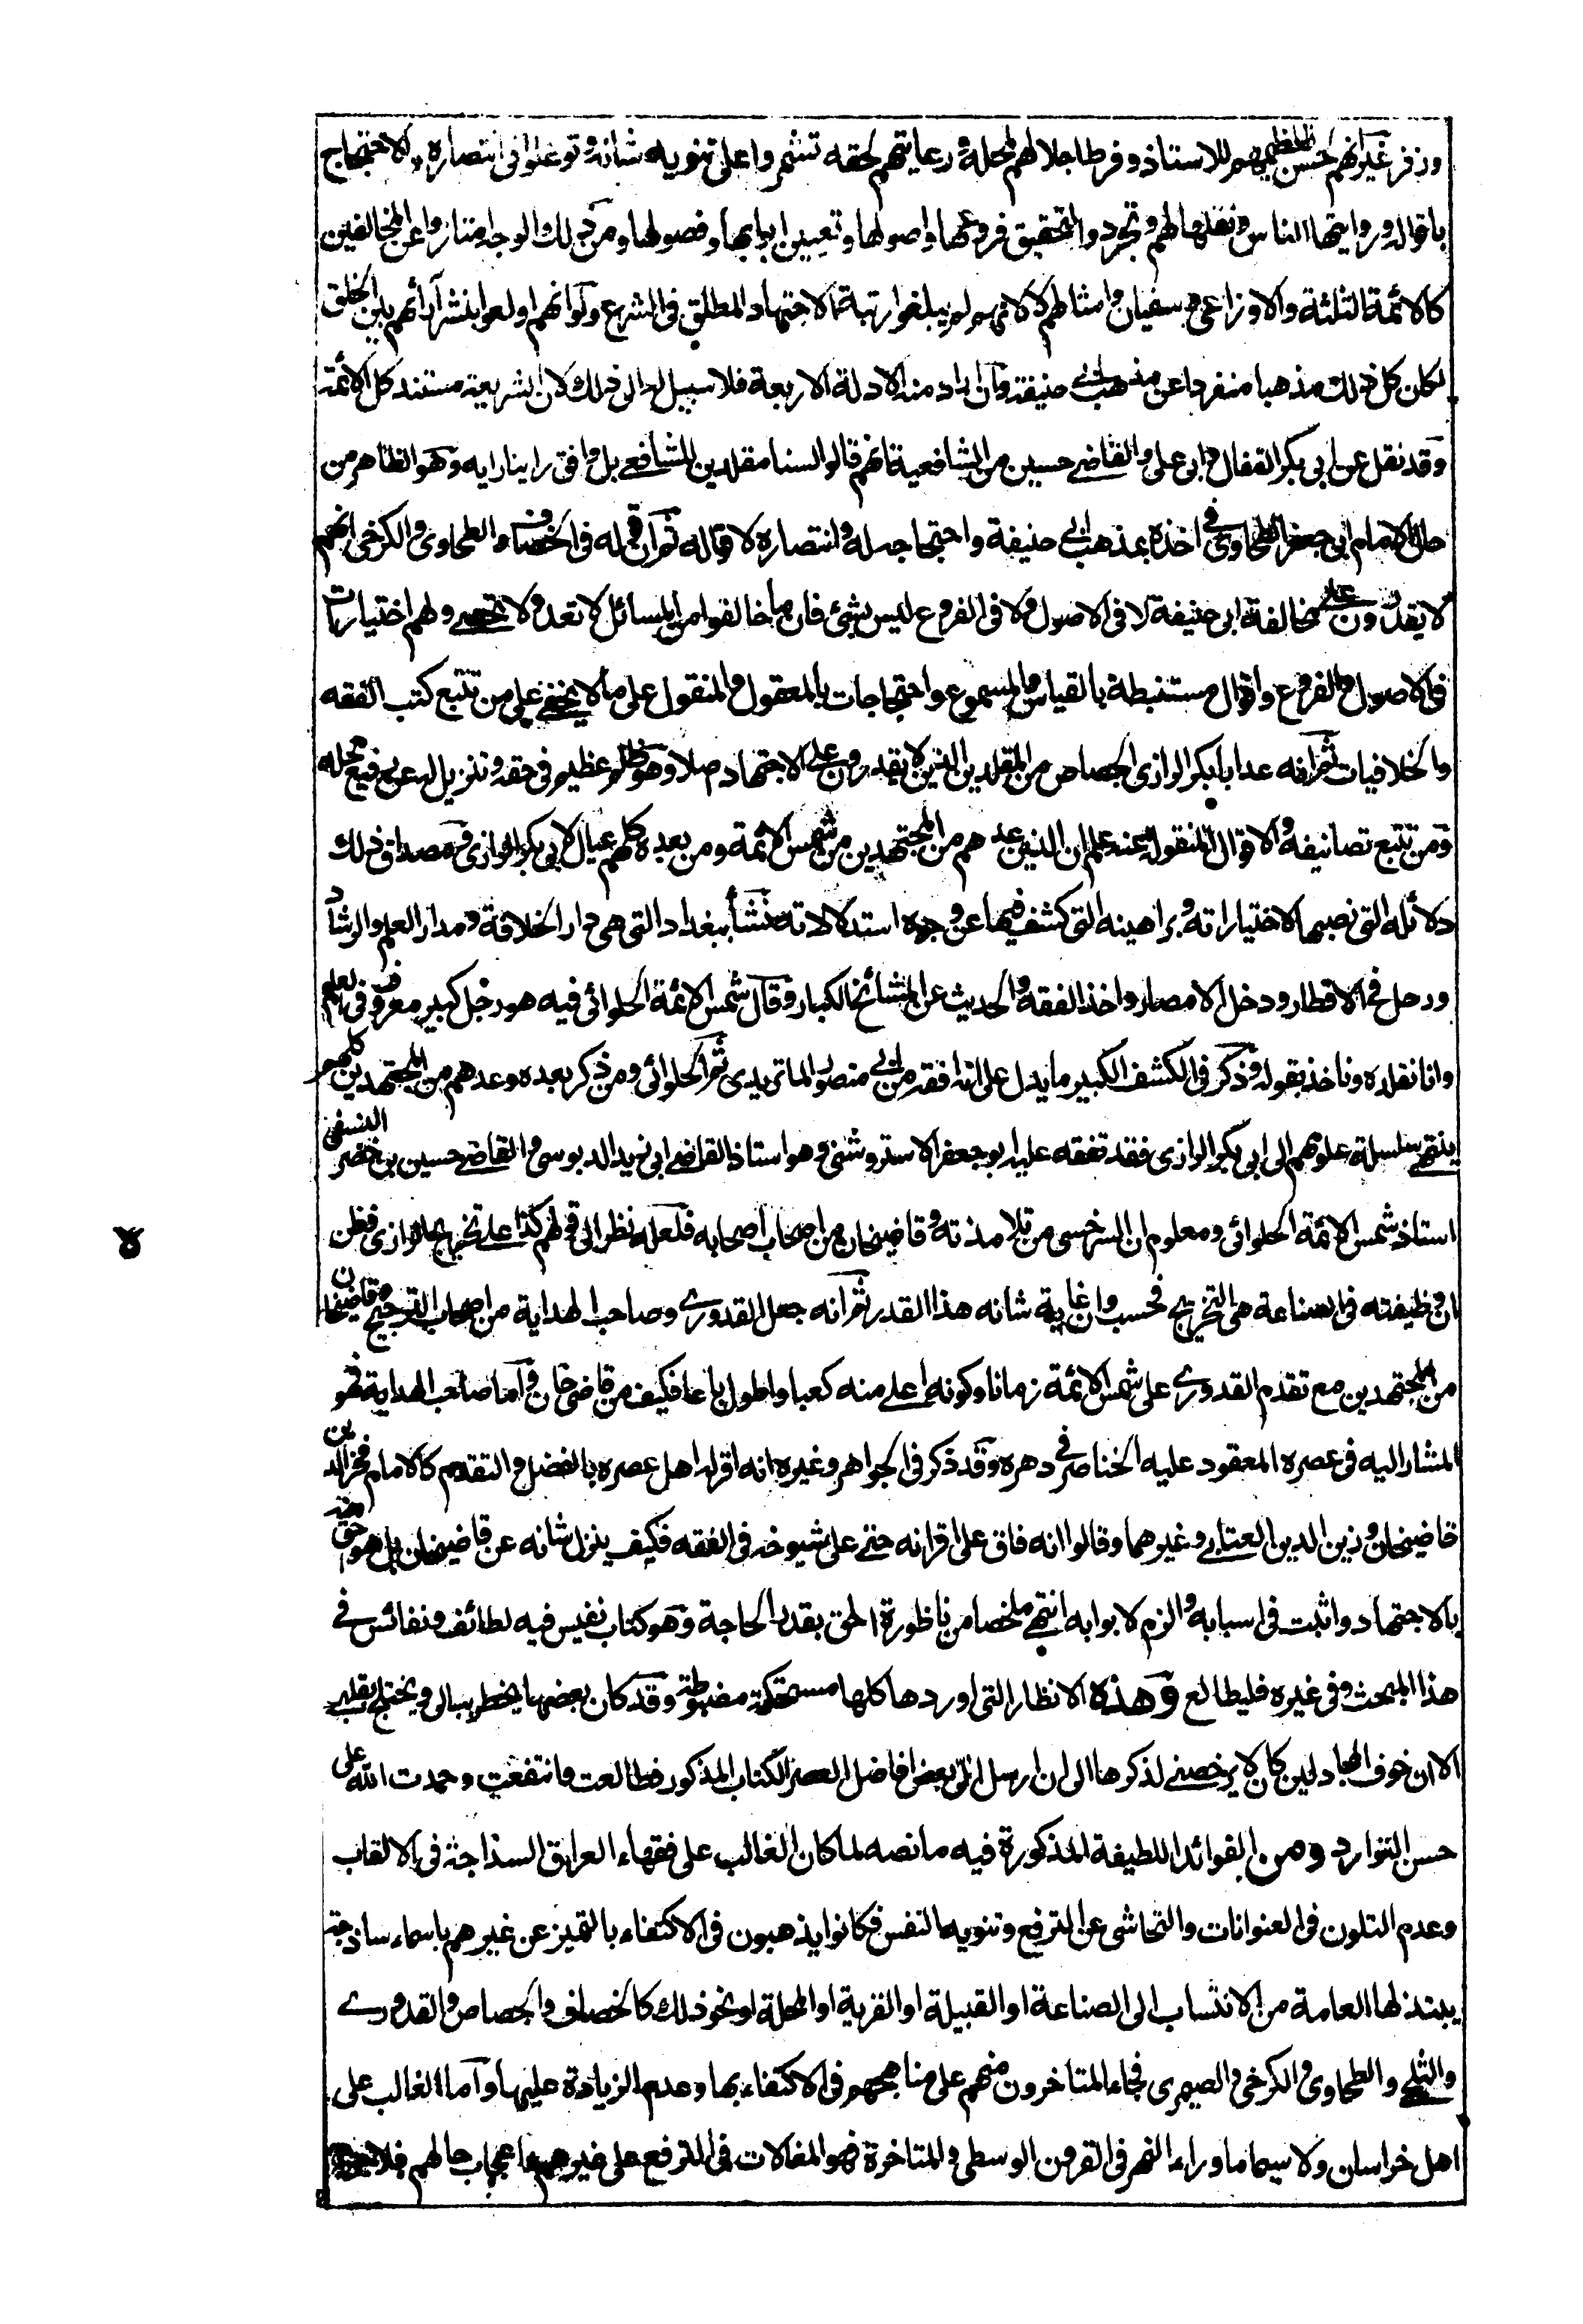 وزفر غير انهم لحسن تعظيمهم للاستاذ وفرط اجلالهم لمحله ورعايتهم لحقه تشمروا على تنويه شانه وتوغلوا فى انتصاره والاحتجاج
باقواله وروايتها للناس ونقلها لهم وتجردوا لتحقيق فروعها واصولها وتعيين ابوابها وفصولها ومن ذلك الوجه امتازوا عن المخالفين
كالائمة الثلثة والاوزاعى وسفيان وامثالهم لا لانهم لم يبلغوا رتبة الاجتهاد المطلق فى الشرع ولو انهم اولعوا بنشر آرائهم بين الخلق
لكان كل ذلك مذهبا منفردا عن مذهب ابى حنيفة وان اراد منه الادلة الاربعة فلا سبيل له الى ذلك لان الشريعة مستند كل الائمة
وقد نقل عن ابى بكر القفال وابى على والقاضى حسين من الشافعية انهم قالوا لسنا مقلدين للشافعى بل وافق راينا رايه وهو الظاهر من
حال الامام ابى جعفر الطحاوى فى اخذه بمذهب ابى حنيفة واحتجاجه له وانتصاره لاقواله ثم ان قوله فى الخصاف والطحاوى والكرخى انهم
لا يقدرون على مخالفة ابى حنيفة لا فى الاصول ولا فى الفروع ليس بشئ فان ما خالفوا من المسائل لا تعد ولا تحصى ولهم اختيارات
فى الاصول والفروع واقوال مستنبطة بالقياس والمسموع واحتجاجات بالمعقول والمنقول على ما لا يخفى على من تتبع كتب الفقه
والخلافيات ثم انه عد ابا بكر الرازى الجصاص من المقلدين الذين لا يقدرون على الاجتهاد اصلا وهو ظلم عظيم فى حقه وتنزيل له عن رفيع محله
ومن تتبع تصانيفه والاقوال المنقولة عنه علم ان الذين عدهم من المجتهدين من شمس الائمة ومن بعده كلهم عيال لابى بكر الرازى ومصداق ذلك
دلائله التى نصبها لاختياراته وبراهينه التى كشف فيها عن وجوه استدلالاته نشأ ببغداد التى هى دار الخلافة ومدار العلم والرشاد
ورحل فى الاقطار ودخل الامصار واخذ الفقه والحديث عن المشائخ الكبار وقال شمس الائمة الحلوائى فيه هو رجل كبير معروف فى العلم
وانا نقلده وناخذ بقوله وذكر فى الكشف الكبير ما يدل على انه افقه من ابى منصور الماتريدى ثم الحلوائى ومن ذكر بعده وعدهم من المجتهدين كلهم
ينتهى سلسلة علومهم الى ابى بكر الرازى فقد تفقه عليه ابو جعفر الاستروشنى وهو استاذ القاضى ابى زيد الدبوسى والقاضى حسين بن خضر النسفى
استاذ شمس الائمة الحلوائى ومعلوم ان السرخسى من تلامذته وقاضيخان من اصحاب اصحابه فلعله نظر الى قولهم كذا على تخريج الرازى فظن
ان وظيفته فى الصناعة هى التخريج فحسب وان غاية شانه هذا القدر ثم انه جعل القدورى وصاحب الهداية من اصحاب الترجيح وقاضيخان
من المجتهدين مع تقدم القدورى على شمس الائمة زمانا وكونه اعلى منه كعبا واطول باعا فكيف من قاضى خان واما صاحب الهداية فهو
المشار اليه فى عصره المعقود عليه الخناصر فى دهره وقد ذكر فى الجواهر وغيره انه اقر له اهل عصره بالفضل والتقدم كالامام فخر الدين
قاضيخان وزين الدين العتابى وغيرهما وقالوا انه فاق على اقرانه حتى على شيوخه فى الفقه فكيف ينزل شانه عن قاضيخان بل هو احق منه
بالاجتهاد واثبت فى اسبابه والزم لابوابه انتهى ملخصا من ناظورة الحق بقدر الحاجة وهو كتاب نفيس فيه لطائف ونفائس فى
هذا المبحث وفى غيره فليطالع وهذه الانظار التى اوردها كلها مستحكمة مضبوطة وقد كان بعضها يخطر ببالى ويختلج بقلبى
الا ان خوف المجادلين كان لا يرخصنى لذكرها الى ان ارسل الى بعض افاضل العصر الكتاب المذكور فطالعت وانتفعت وحمدت الله على
حسن التوارد ومن الفوائد اللطيفة المذكورة فيه ما نصه لما كان الغالب على فقهاء العراق السذاجة فى الالقاب
وعدم التلون فى العنوانات والتحاشى عن الترفع وتنويه النفس فكانوا يذهبون فى الاكتفاء بالتميز عن غيرهم باسماء ساذجة
يبتذلها العامة من الانتساب الى الصناعة او القبيلة او القرية او المحلة او نحو ذلك كالخصاف والجصاص والقدورى
والثلجى والطحاوى والكرخى والصيمرى فجاء المتاخرون منهم على مناهجهم فى الاكتفاء بها وعدم الزيادة عليها واما الغالب على
اهل خراسان ولا سيما ما وراء النهر فى القرون الوسطى والمتاخرة فهو المغالات فى الترفع على غيرهم واعجاب حالهم
ﻻ